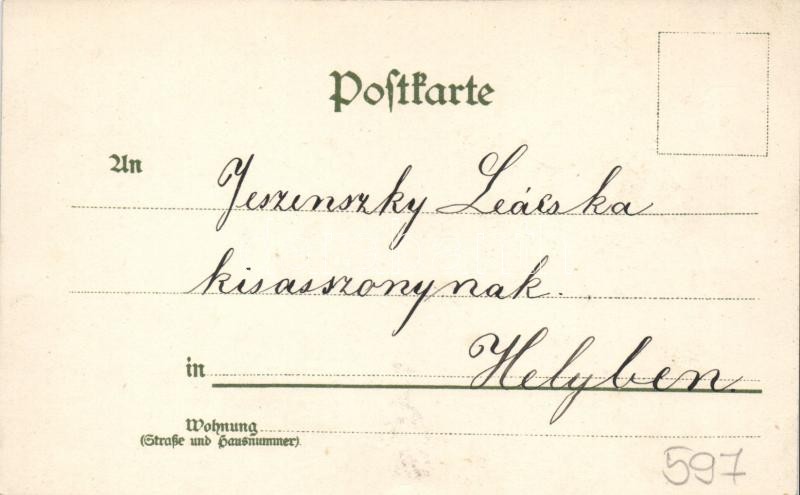 Postkarte
An Jeszenszky Leácska
kisasszonynak.
in Helyben.
Wohnung
(Straße und Hausnummer)
597